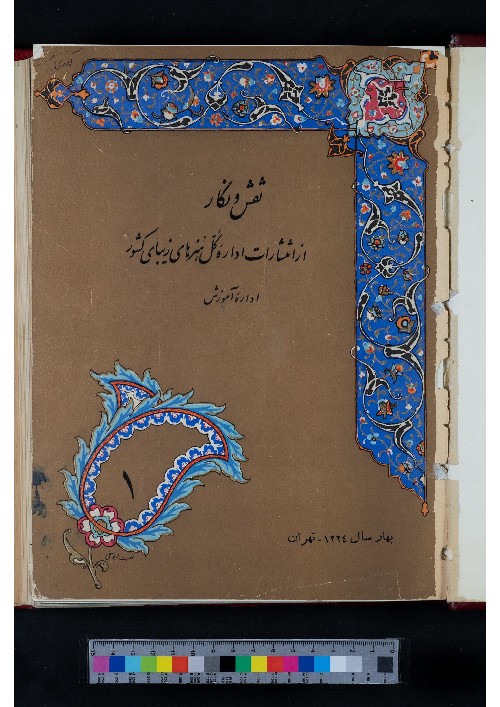 نقش و نگار
از انتشارات ادارهٔ کل هنرهای زیبای کشور
ادارهٔ آموزش
۱
بهار سال ۱۳۳۴ - تهران